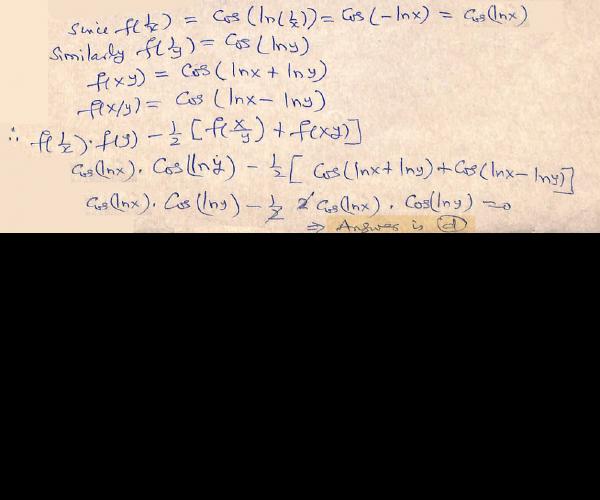 Since f(1/x) = Cos(ln(1/x)) = Cos(-lnx) = Cos(lnx)
Similarly f(1/y) = Cos(lny)
f(xy) = Cos(lnx + lny)
f(x/y) = Cos(lnx - lny)
∴ f(1/x) · f(y) - 1/2 [f(x/y) + f(xy)]
Cos(lnx) · Cos(lny) - 1/2 [Cos(lnx + lny) + Cos(lnx - lny)]
Cos(lnx) · Cos(lny) - 1/2 2 Cos(lnx) · Cos(lny) = 0
⇒ Answer is (d)